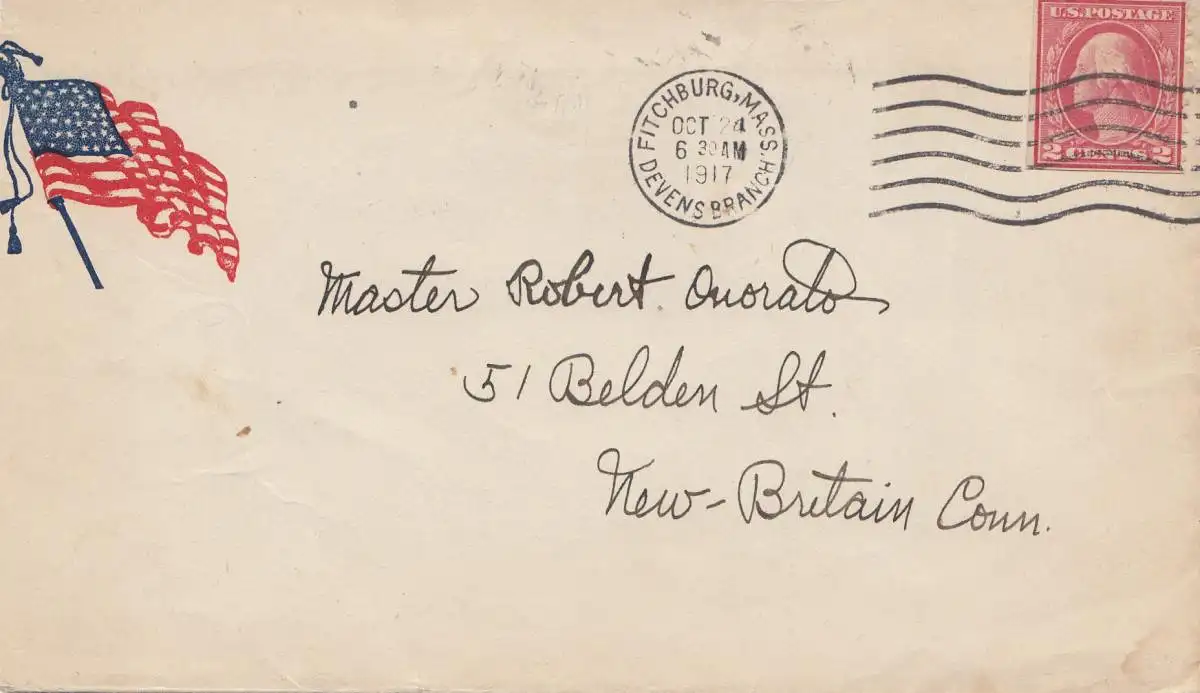 U.S. POSTAGE
2 CENTS 2
FITCHBURG, MASS.
OCT 24
6 30 AM
1917
DEVENS BRANCH
Master Robert. Onorato
51 Belden St.
New-Britain Conn.